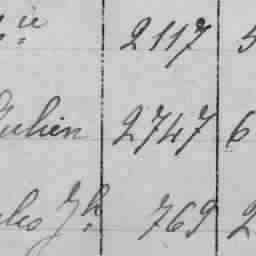 ie 2117 5
Julien 2747 6
Jh 769 2